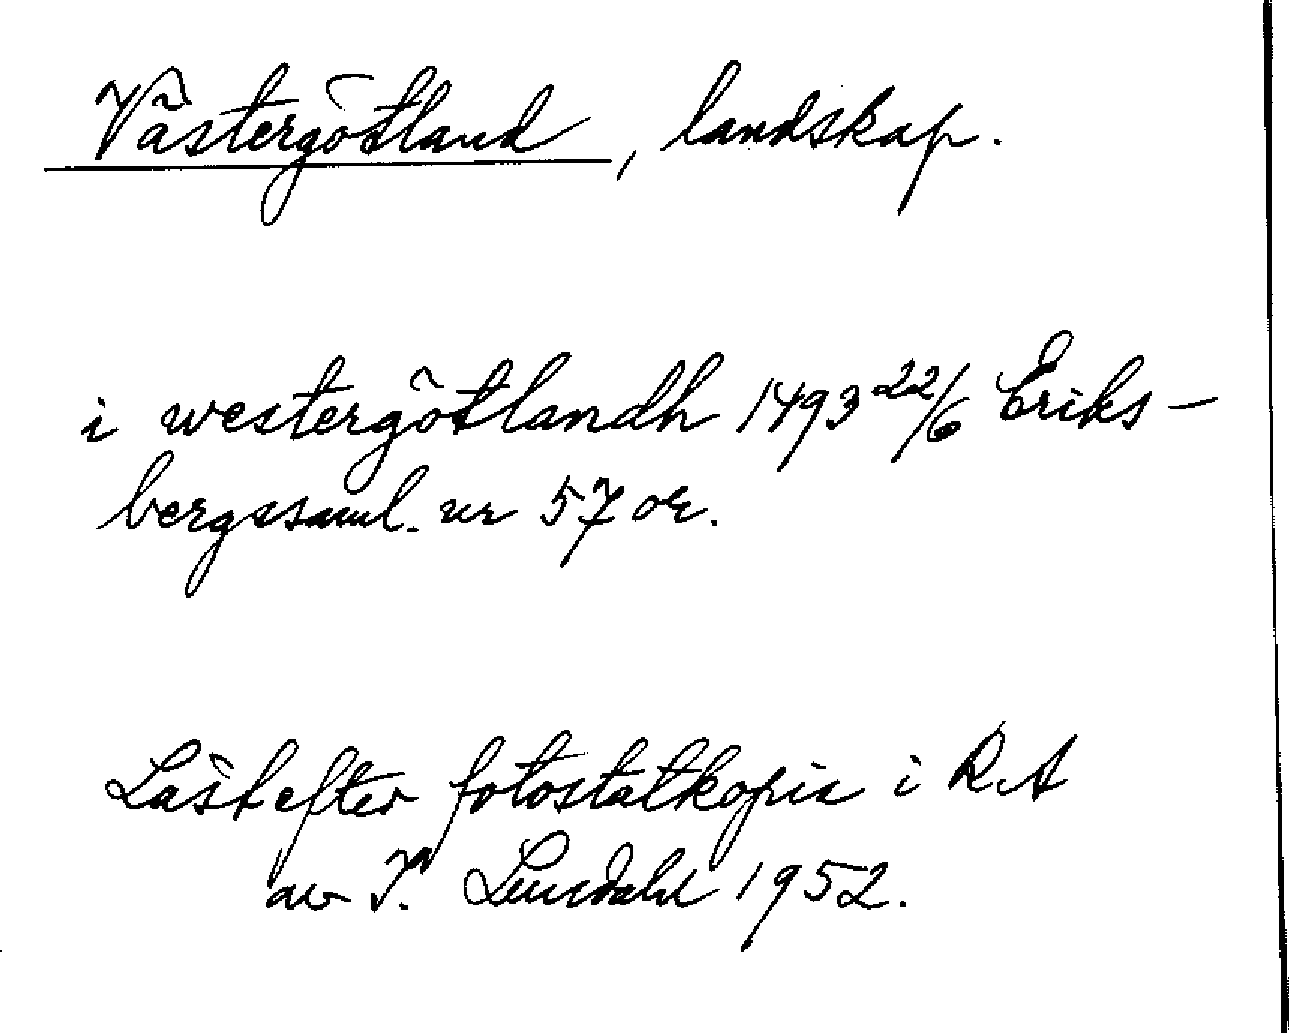 Västergötland, landskap.
i westergötlandh 1493 22/6 Eriks-
bergssaml. nr 57 or.
Läst efter fotostatkopia i RA
av I. Lindahl 1952.